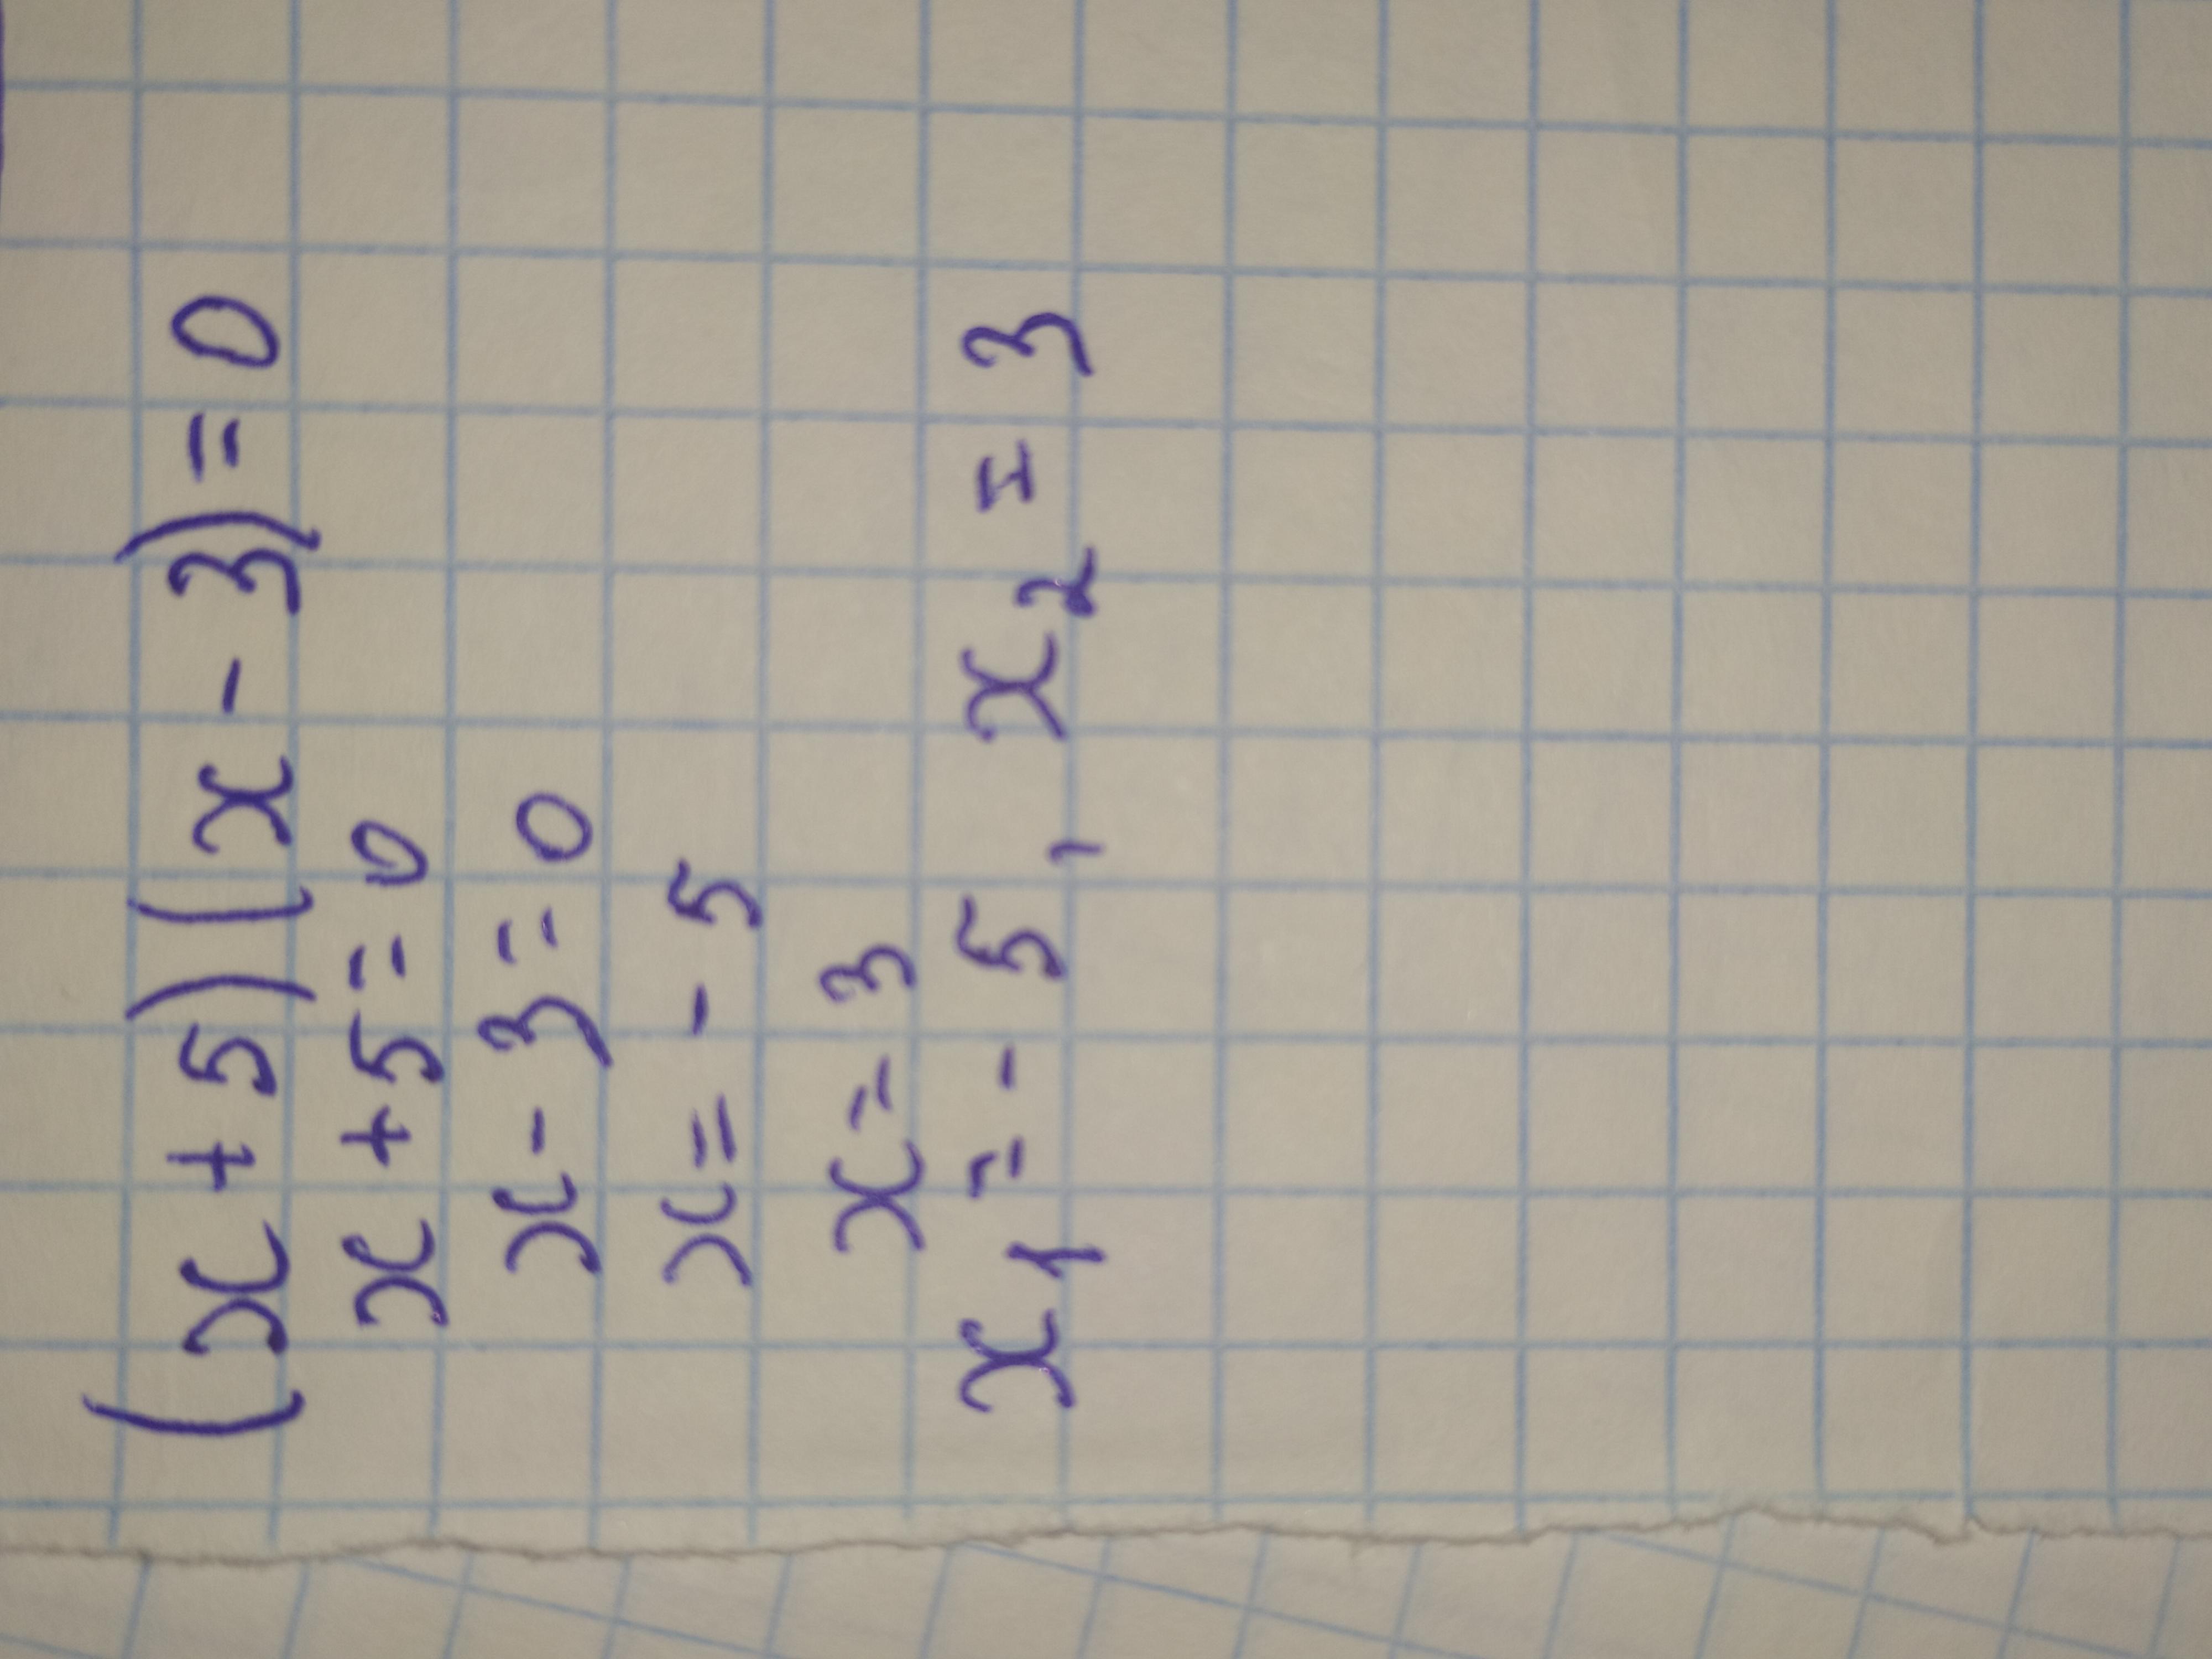 (x + 5)(x - 3) = 0
x + 5 = 0
x - 3 = 0
x = - 5
x = 3
x₁ = - 5, x₂ = 3